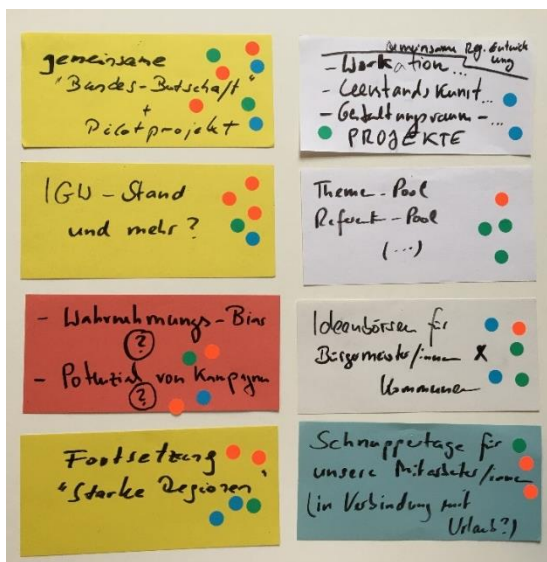 gemeinsame
"Bundes-Botschaft"
+
Pilotprojekt
IGW-Stand
und mehr?
- Wahrnehmungs-Bias
?
- Potenzial von Kampagnen
?
Fortsetzung
"Starke Regionen"
gemeinsame Reg. Entwicklung
- Workation...
- Leerstandskunst...
- Gestaltungsraum-...
PROJEKTE
Theme-Pool
Referent-Pool
(...)
Ideenbörsen für
Bürgermeister/innen X
Kommunen
Schnuppertage für
unsere Mitarbeiter/innen
(in Verbindung mit
Urlaub?)